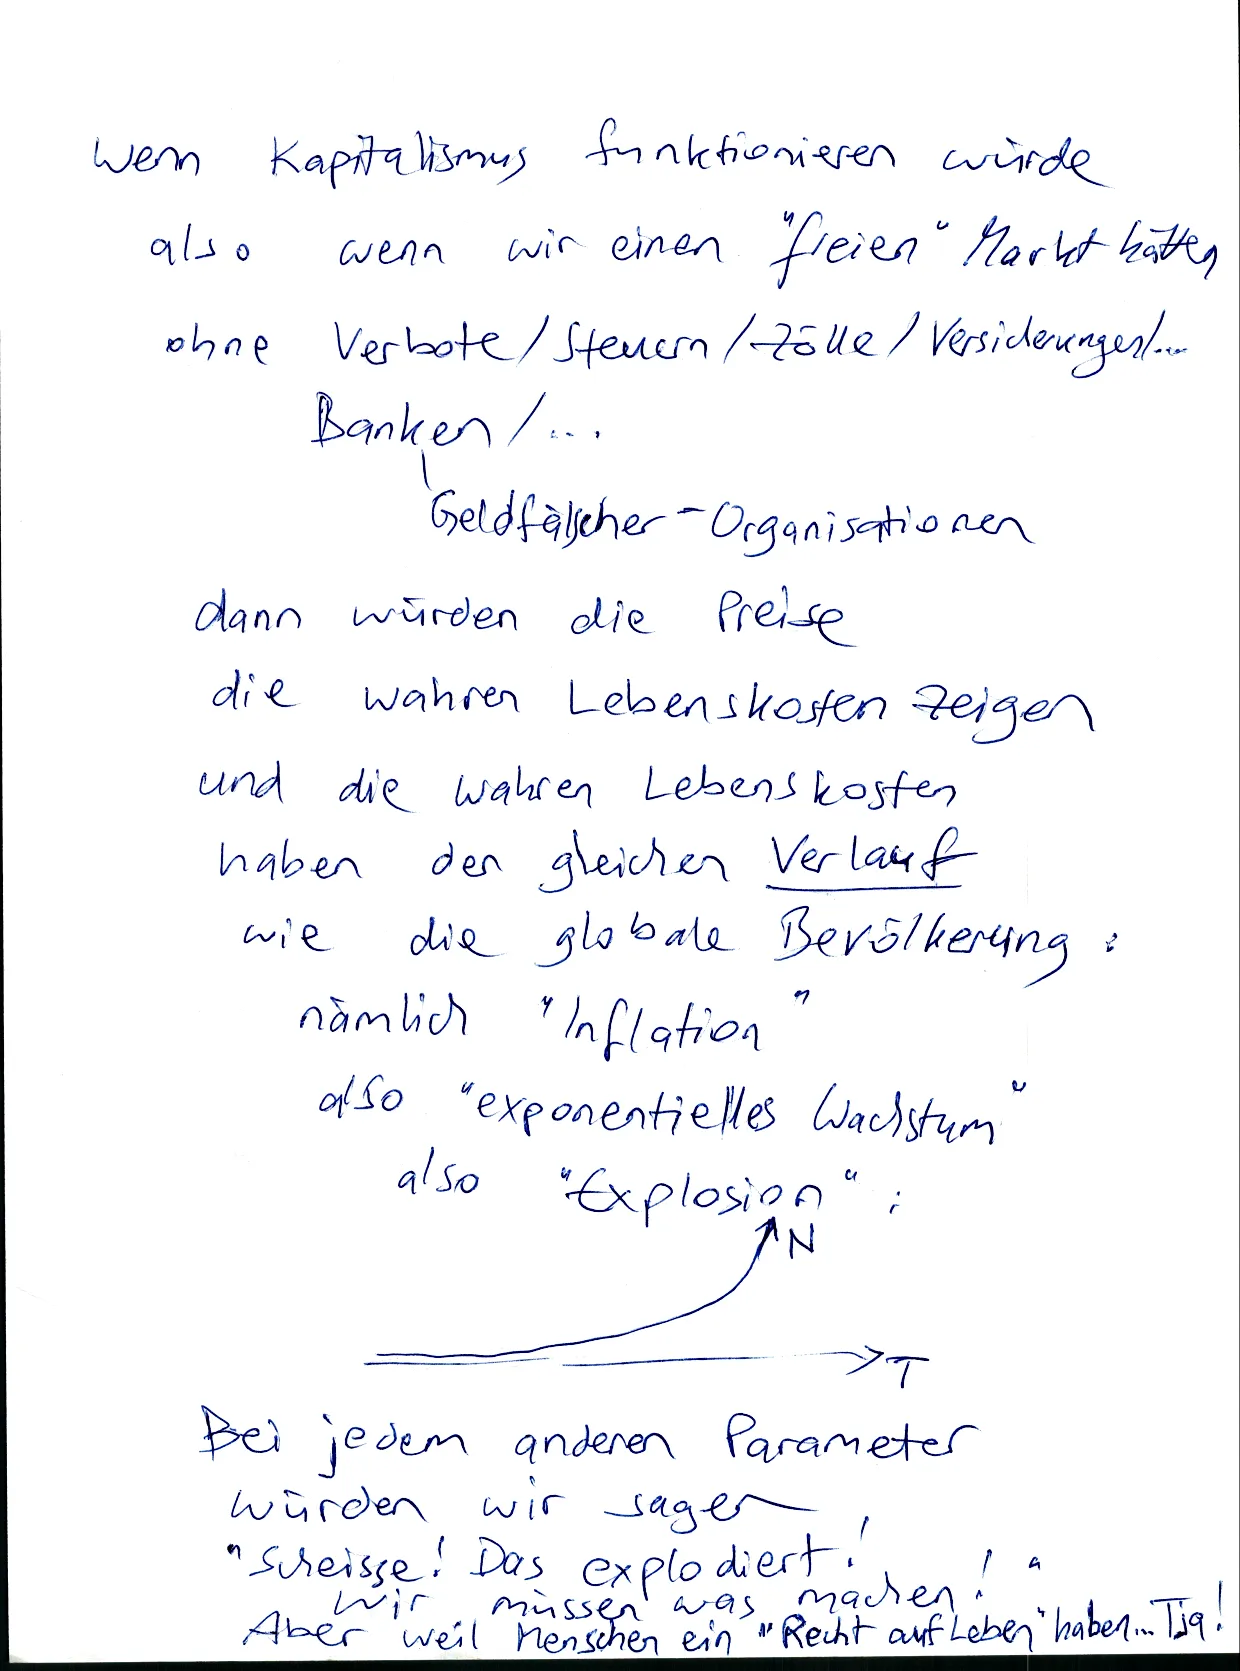 wenn Kapitalismus funktionieren würde
also wenn wir einen "freien" Markt hätten
ohne Verbote/Steuern/Zölle/Versicherungen/...
Banken/...
Geldfälscher-Organisationen
dann würden die Preise
die wahren Lebenskosten zeigen
und die wahren Lebenskosten
haben den gleichen Verlauf
wie die globale Bevölkerung:
nämlich "Inflation"
also "exponentielles Wachstum"
also "Explosion":
N
T
Bei jedem anderen Parameter
würden wir sagen
"Scheisse! Das explodiert!
wir müssen was machen!!"
Aber weil Menschen ein "Recht auf Leben" haben... Tja!